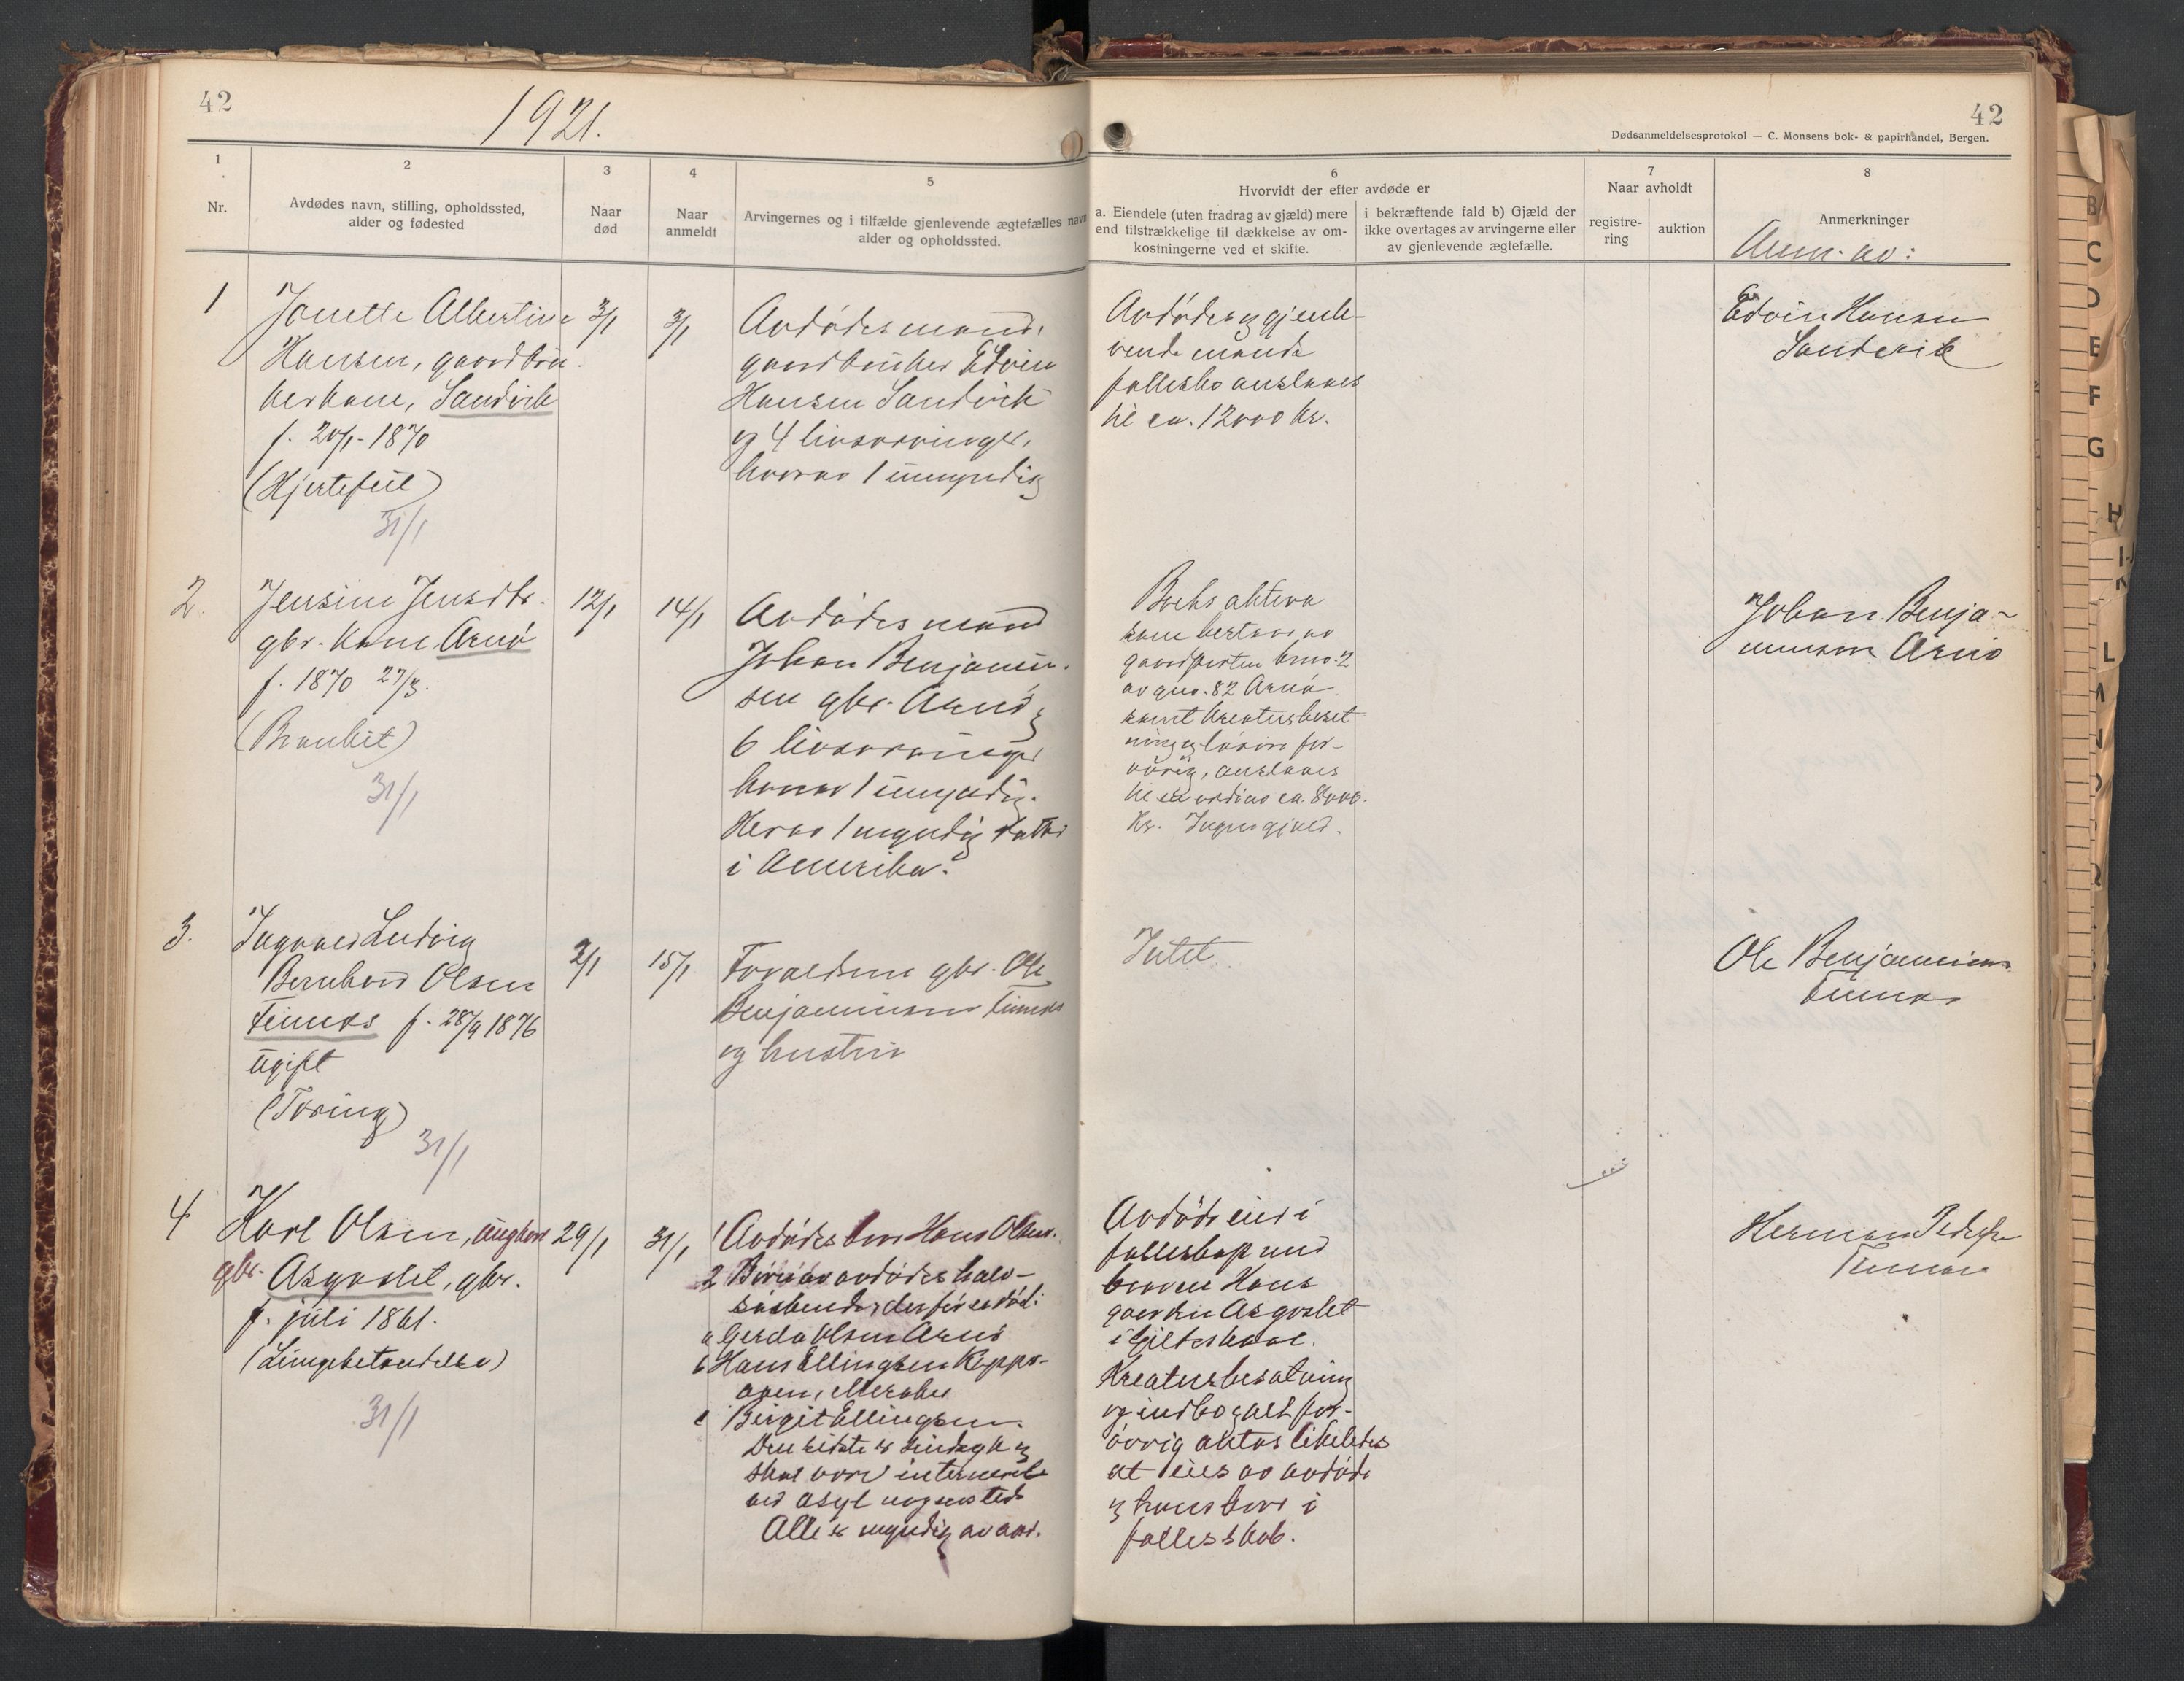 42
1921.
1
Nr.
2
Avdødes navn, stilling, opholdssted,
alder og fødested
3
Naar
død
4
Naar
anmeldt
5
Arvingernes og i tilfælde gjenlevende ægtefælles navn
alder og opholdssted.
1
Jonette Albertine
Hansen, gaardbru-
kerkone, Sandvik
f. 20/1-1870
(Hjertefeil)
31/1
3/1
3/1
Avdødes mand,
gaardbruker Edvin
Hansen Sandvik
og 4 livsarvinger,
hvorav 1 umyndig
2.
Jensine Jensdtr.
gbr. kone Arnø
f. 1870 27/3.
31/1
12/1
14/1
Avdødes mand
Johan Benjamin-
sen gbr. Arnø og
6 livsarvinger
hvorav 1 umyndig.
Herav 1 myndig datter
i Amerika.
3.
Ingvald Ludvig
Bernhard Olsen
Finnes f. 28/9 1876
ugift
(Tæring)
31/1
2/1
15/1
Forældrene gbr. Ole
Benjaminsen Finnes
og hustru
4
Karl Olsen, ungkar
gbr. Asgaslet, gbr.
f. juli 1861.
(Lungebetændelse)
31/1
29/1
31/1
1 Avdødes bror Hans Olsen.
2 Børn av avdødes halv-
søskende, der før er død:
a Gerda Olsen Arnø
b Hans Ellingsen
c Birgit Ellingsen.
Den sidste er sindsyk og
skal være interneret
ved asyl nogensteds
Alle er myndig av aar.
42
Dødsanmeldelsesprotokol — C. Monsens bok- & papirhandel, Bergen.
6
Hvorvidt der efter avdøde er
a. Eiendele (uten fradrag av gjæld) mere
end tilstrækkelige til dækkelse av om-
kostningerne ved et skifte.
i bekræftende fald b) Gjæld der
ikke overtages av arvingerne eller
av gjenlevende ægtefælle.
7
Naar avholdt
registre-
ring
auktion
8
Anmerkninger
Anm. av:
Avdødes og gjenle-
vende mands
fællesbo anslaaes
til ca. 12000 kr.
Edvin Hansen
Sandvik
Boets aktiva
som bestaar av
gaardparten bno. 2
av gno. 82 Arnø
samt kreaturbeset
ning og løsøre for-
øvrig, anslaaes
til en værdi av ca. 8000.
Kr. Ingen gjæld.
Johan Benja-
minsen Arnø
Intet
Ole Benjaminsen
Finnes
Avdøde eier i
fællesskap med
broren Hans
gaarden Asgaslet
i Gildeskaal.
Kreaturbesætning
og indbo og alt for-
øvrig antas likeledes
at eies av avdøde
og hans bror i
fællesskab.
Herman Pedersen
Finnes
B
C
D
E
F
G
H
I-J
K
L
M
N
O